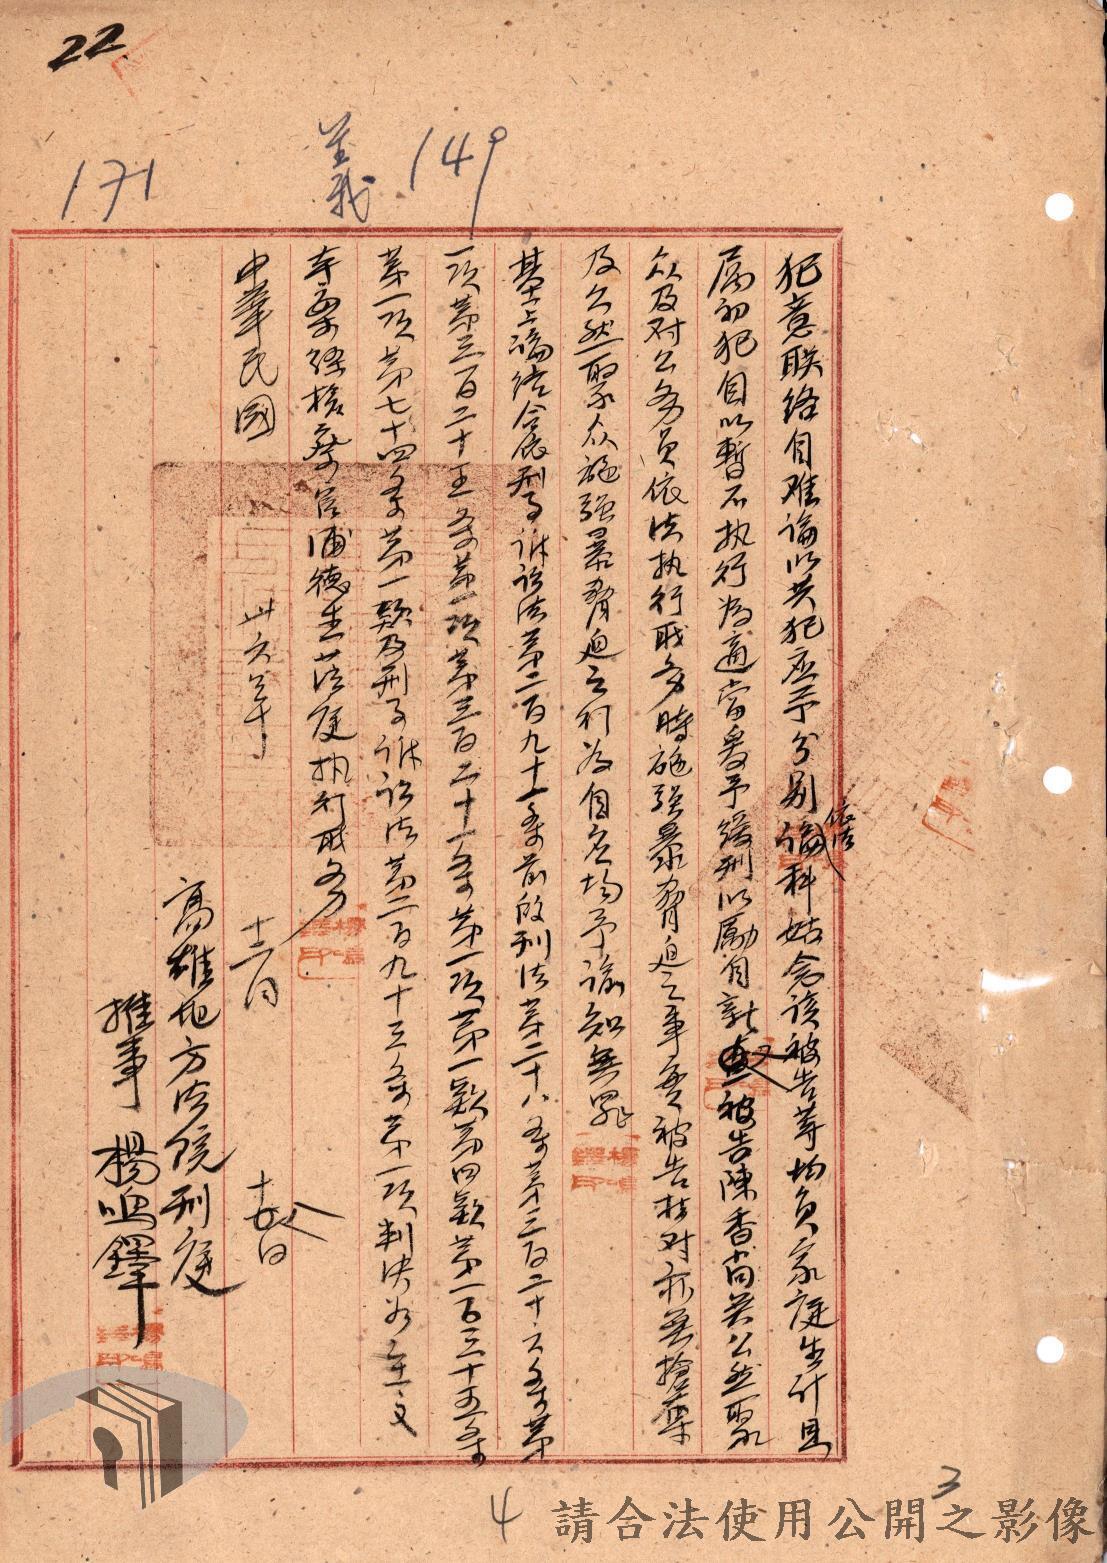 22
171
149
犯意联络自难論以共犯应予分别依法論科姑念該被告等均負家庭生计且
属初犯自以暫不执行为適当爰予緩刑以勵自新又被告陳香尚无公然聚
众及对公务员依法执行职务時施强暴脅迫之事
及公然聚众施强暴脅迫之行为自应均予諭知無罪
基上論结合依刑事訴訟法第二百九十一条前段刑法第二十八条第三百二十六条第
一项第三百二十五条第一项第三百二十一条第一项第一款第四款第一百三十五条
第一项第七十四条第一款及刑事訴訟法第二百九十三条第一项判決如主文
本案经检察官
蒞庭执行职务
中華民國 卅六年 十二月 十八日
高雄地方法院刑庭
推事 楊鳴鐸
3
4
請合法使用公開之影像